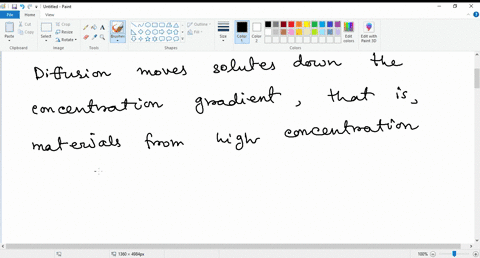 Untitled - Paint
File
Home
View
Paste
Select
Brushes
Shapes
Size
Color 1
Color 2
Edit colors
Edit with Paint 3D
Clipboard
Image
Tools
Shapes
Colors
Diffusion moves solutes down the
concentration gradient, that is,
materials from high concentration
1360 × 4984px
100%